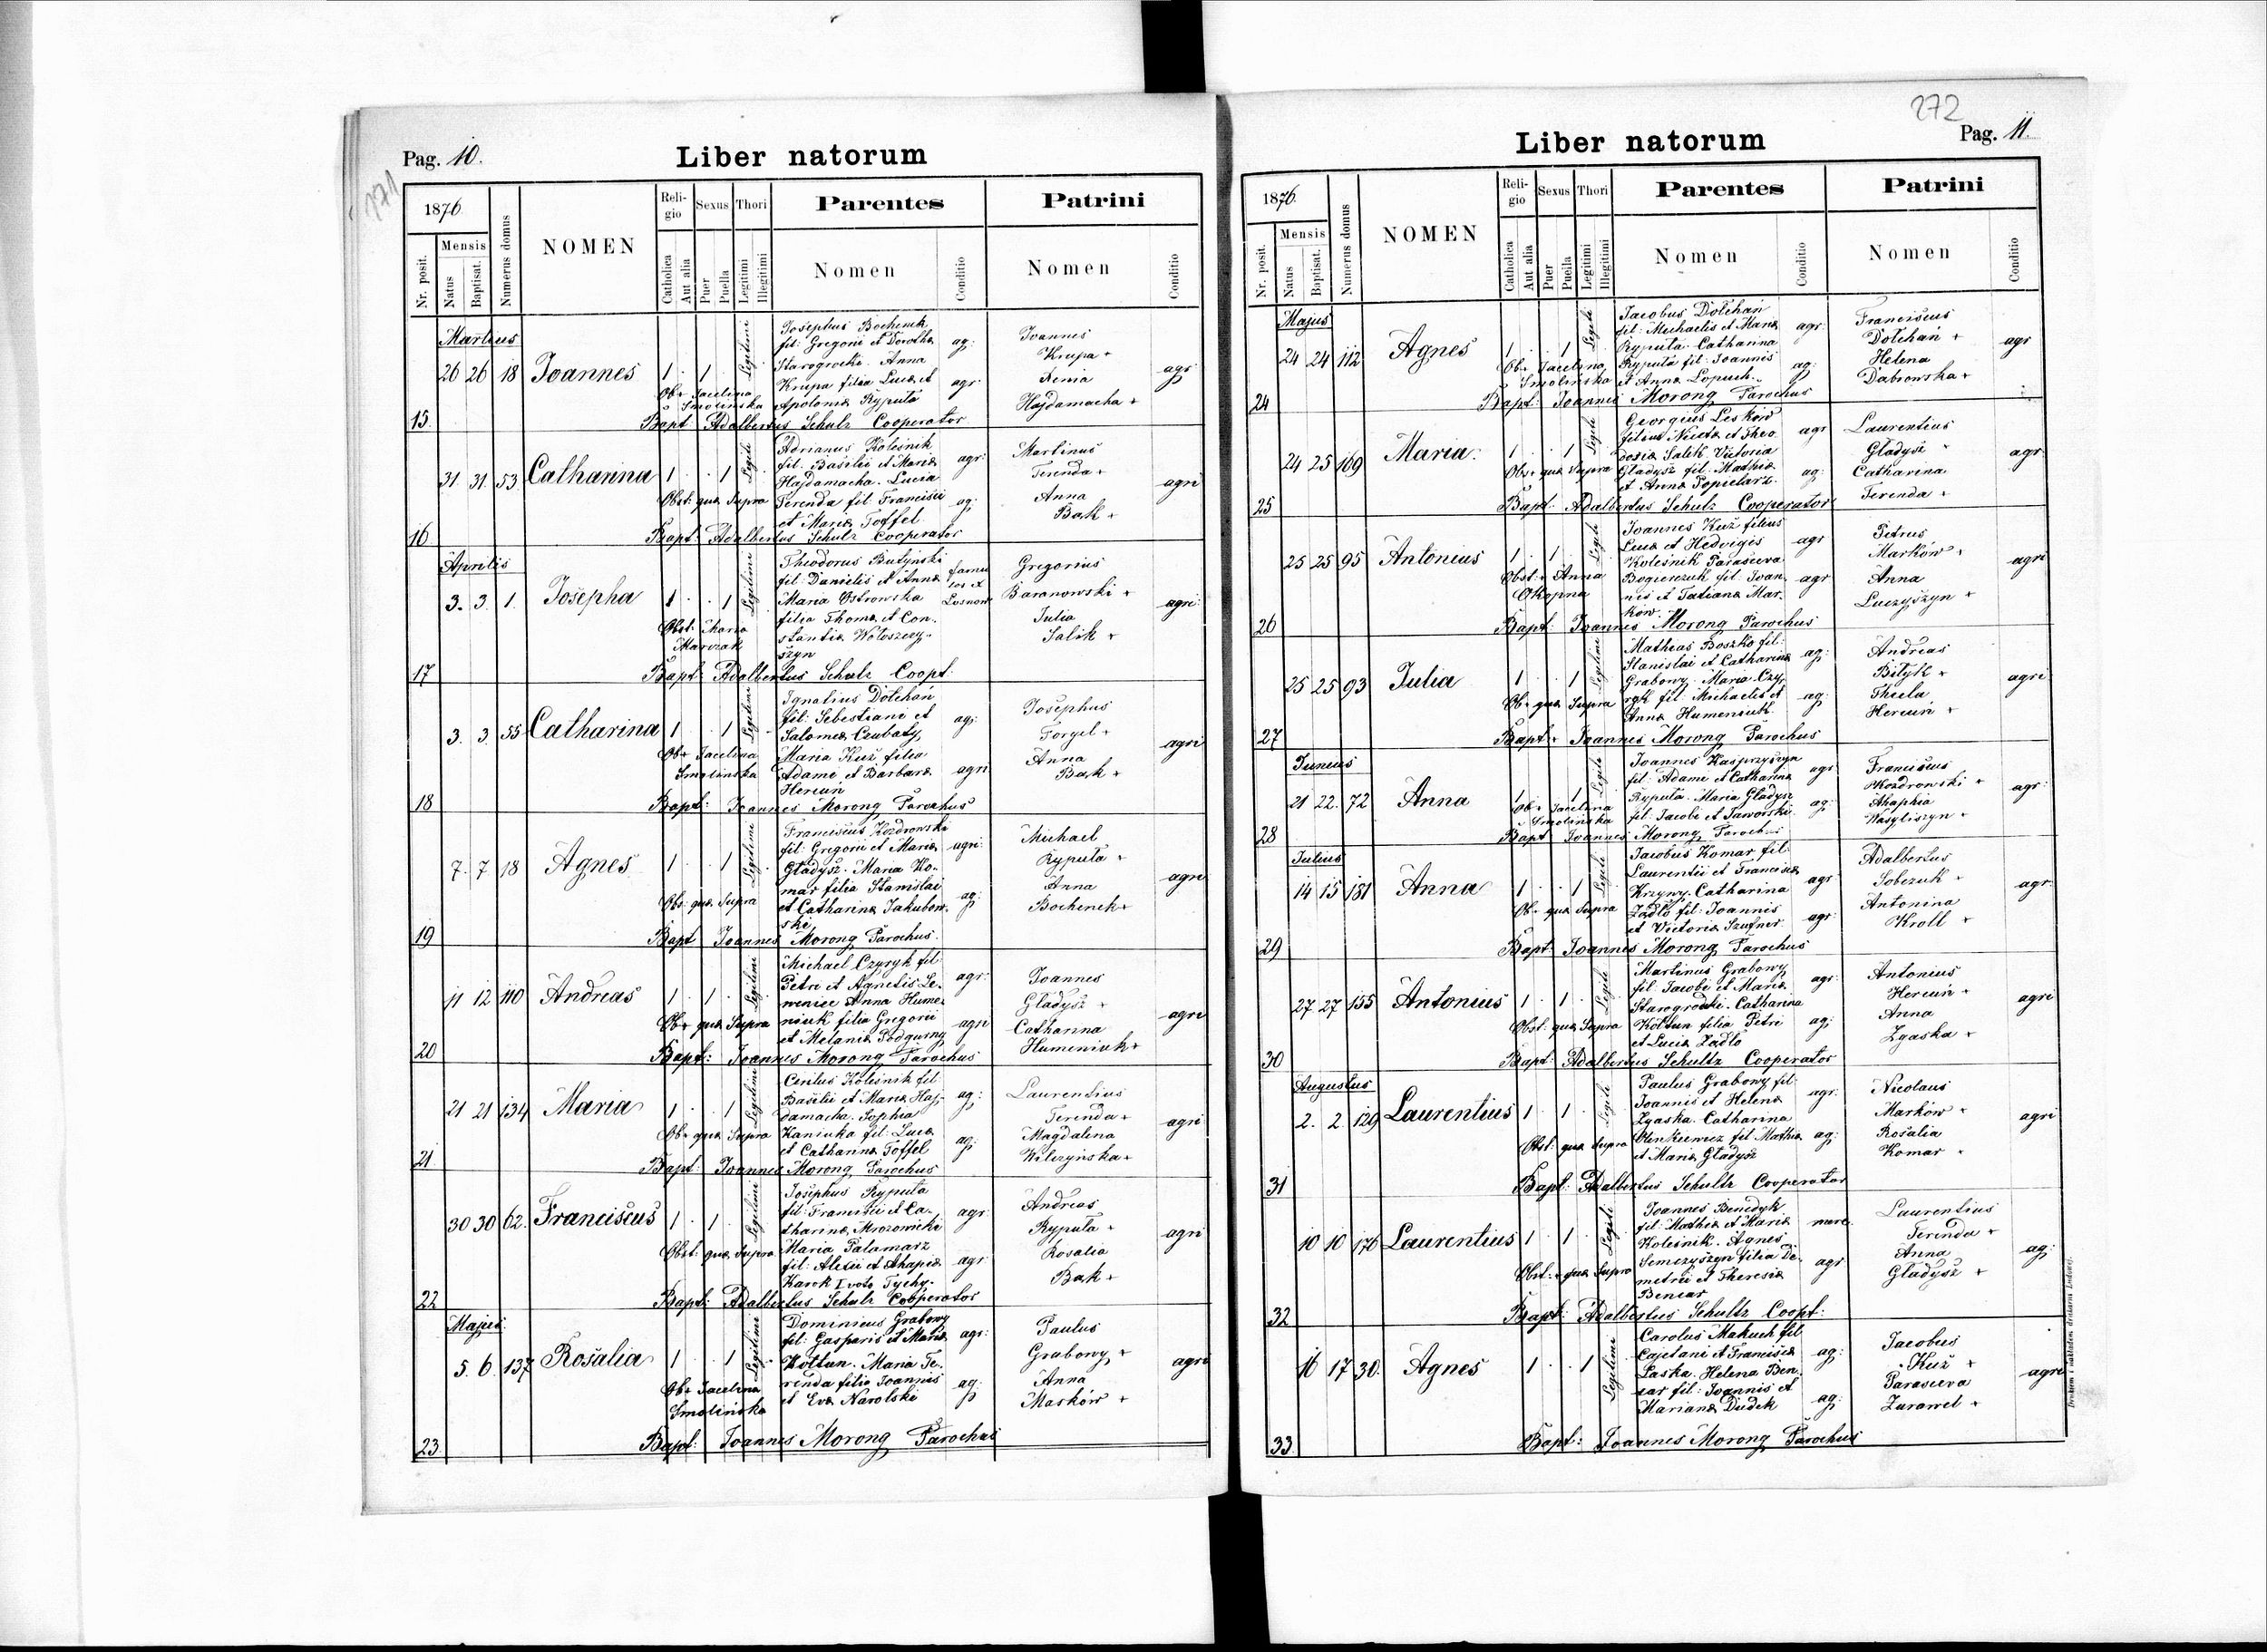 271
Pag. 10.
Liber natorum
1876.
Mensis
Nr. posit.
Natus
Baptisat.
Numerus domus
NOMEN
Reli-
gio
Sexus
Thori
Parentes
Patrini
Catholica
Aut alia
Puer
Puella
Legitimi
Illegitimi
Nomen
Conditio
Nomen
Conditio
Martius
26 26 18 Joannes 1 . 1 Legitimi
Josephus Bochenek
fil: Gregorii et Dorothæ ag:
Starogrocki. Anna
Krupa filia Lucæ et agr
Apoloniæ Ryputa
Joannes
Krupa +
Xenia
Hajdamacha +
agr
Ob+ Jacelina
Smolińska
15. Bapt Adalbertus Schulz Cooperator
31 31. 53 Catharina 1 . . 1 Legiti
Adrianus Koleśnik
fil. Basilii et Mariæ agr:
Hajdamacha. Lucia
Ferenda fil Francisci ag:
et Mariæ Toffel
Martinus
Ferenda +
Anna
Bak +
agri
Obst: quæ Supra
16 Bapt: Adalbertus Schulz Cooperator
Aprilis
3. 3. 1. Josepha 1 . . 1 Legitimi
Theodorus Butyński
fil: Danielis et Annæ
Maria Ostrowska
filia Thomæ et Con-
stantiæ Wołoszczy-
szyn
Gregorius
Baranowski +
Julia
Salik +
agri
Obst: Maria
Marczak
17 Bapt: Adalbertus Schulz Coopt.
3. 3. 55 Catharina 1 . . 1 Legitimi
Ignatius Dołchań
fil: Sebestiani et ag:
Salomeæ Czubaty,
Maria Kuż filia
Adami et Barbaræ agri
Hercuń
Josephus
Forgel +
Anna
Bak +
agri
Ob+ Jacelina
Smolińska
18 Bapt: Joannes Morong Parochus
7. 7 18 Agnes 1 . . 1 Legitimi
Franciscus Kozdrowski
fil: Gregorii et Mariæ agri:
Gładysz. Maria Ko-
mar filia Stanislai
et Catharinæ Jakubow- ag:
ski
Michael
Ryputa +
Anna
Bochenek +
agri
Obs: quæ Supra
19 Bapt Joannes Morong Parochus.
11 12 110 Andreas 1 . 1 . Legitimi
Michael Czyryk fil
Petri et Agnetis Le- agr:
wenice Anna Hume-
niuk filia Gregorii
et Melaniæ Podgurny agri
Joannes
Gładysz +
Catharina
Humeniuk +
agri
Ob+ quæ Supra
20 Bapt: Joannes Morong Parochus
21 21 134 Maria 1 . . 1 Legitimi
Cirilus Koleśnik fil:
Basilii et Mariæ Haj- ag:
damacha. Sophia
Kaniuka fil: Lucæ
et Catharinæ Toffel ag:
Laurentius
Ferenda +
Magdalena
Wilczyńska +
agri
Ob+ quæ Supra
21 Bapt: Joannes Morong Parochus
30 30 62. Franciscus 1 . 1 . Legitimi
Josephus Ryputa
fil: Francisci et Ca- agr:
tharinæ Mrozowicki
Maria Palamarz
fil: Alexii et Ahapiæ agr:
Karok I voto Tychy-
Andreas
Ryputa +
Rosalia
Bak +
agri
Obst: quæ Supra
22 Bapt: Adalbertus Schulz Cooperator
Majus
5. 6. 137 Rosalia 1 . . 1 Legitimi
Dominicus Grabowy
fil: Gasparis et Mariæ agr:
Kołtun. Maria Fe-
renda filia Joannis
et Evæ Narolski ag:
Paulus
Grabowy +
Anna
Marków +
agri
Ob+ Jacelina
Smolińska
23. Bapt: Joannes Morong Parochus
272
Pag. 11.
Liber natorum
1876.
Mensis
Nr. posit.
Natus
Baptisat.
Numerus domus
NOMEN
Reli-
gio
Sexus
Thori
Parentes
Patrini
Catholica
Aut alia
Puer
Puella
Legitimi
Illegitimi
Nomen
Conditio
Nomen
Conditio
Majus
24 24 112 Agnes 1 . . 1 Legiti
Jacobus Dołchań
fil: Michaelis et Mariæ agr:
Ryputa. Catharina
Ryputa fil: Joannis ag:
et Annæ Lopuch.
Franciscus
Dołchań +
Helena
Dabrowska +
agr
Ob+ Jacelina
Smolińska
24 Bapt: Joannes Morong Parochus
24 25 169 Maria. 1 . . 1 Legiti
Georgius Leśków
filius Nicetæ et Theo- agr
dosiæ Salik Victoria
Gładysz fil: Mathiæ ag:
et Annæ Popielarz.
Laurentius
Gładysz +
Catharina
Ferenda +
agr
Obs+ quæ Supra
25 Bapt: Adalbertus Schulz Cooperator
25 25 95 Antonius 1 . 1 . Legiti
Joannes Kuż filius
Lucæ et Hedvigis agr
Koleśnik Parasceva
Bogierczuk fil: Joan- agr
nis et Tatianæ Mar-
ków.
Petrus
Marków +
Anna
Luczyszyn +
agri
Obst: + Anna
Okopna
26 Bapt: Joannes Morong Parochus
25 25 93 Julia 1 . . 1 Legitimi
Mathias Boszko fil:
Stanislai et Catharinæ ag:
Grabowy. Maria Czy-
ryk fil: Michaelis et ag:
Annæ Humeniuk.
Andreas
Bityk +
Thecla
Hercuń +
agri
Ob+ quæ Supra
27 Bapt+ Joannes Morong Parochus
Junius
21 22. 72 Anna 1 . . 1 Legiti
Joannes Kasprzyszyn
fil: Adami et Catharinæ agr
Ryputa. Maria Gładysz
fil: Jacobi et Jaworski. ag:
Franciscus
Kozdrowski +
Ahaphia
Wasyliszyn +
agr:
Ob+ Jacelina
Smolińska
28 Bapt Joannes Morong Parochus
Julius
14 15 181 Anna 1 . . 1 Legiti
Jacobus Komar fil:
Laurentii et Franciscæ
Krzywy. Catharina agr
Żądło fil: Joannis
et Victoriæ Szufner. agr:
Adalbertus
Sobczuk +
Antonina
Kroll +
agr:
Ob+ quæ Supra
29 Bapt Joannes Morong Parochus
27 27 155 Antonius 1 . 1 . Legiti
Martinus Grabowy
fil: Jacobi et Mariæ agr:
Starogrodzki. Catharina
Kołtun filia Petri ag:
et Luciæ Żądło
Antonius
Hercuń +
Anna
Zgaska +
agri
Obst: quæ Supra
30 Bapt: Adalbertus Schultz Cooperator
Augustus
2. 2. 129 Laurentius 1 . 1 . Legiti
Paulus Grabowy fil:
Joannis et Helenæ agr:
Zgaska. Catharina
Olenkiewicz fil Mathiæ ag:
et Mariæ Gładysz
Nicolaus
Marków +
Rosalia
Komar +
agri
Obst: quæ Supra
31 Bapt: Adalbertus Schultz Cooperator
10 10 176 Laurentius 1 . 1 . Legiti
Joannes Benedyk
fil: Mathiæ et Mariæ merc.
Koleśnik. Agnes
Semczyszyn filia De- agr
metrii et Theresiæ
Bencar
Laurentius
Ferenda +
Anna
Gładysz +
ag:
Obst: + quæ Supra
32 Bapt: Adalbertus Schultz Coopt:
16 17 30. Agnes 1 . . 1 Legitimi
Carolus Makuch fil
Cajetani et Franciscæ ag:
Laska. Helena Ben-
car fil: Joannis et
Marianæ Dudek ag:
Jacobus
Kuż +
Parasceva
Zurawel +
agri
33. Bapt: Joannes Morong Parochus